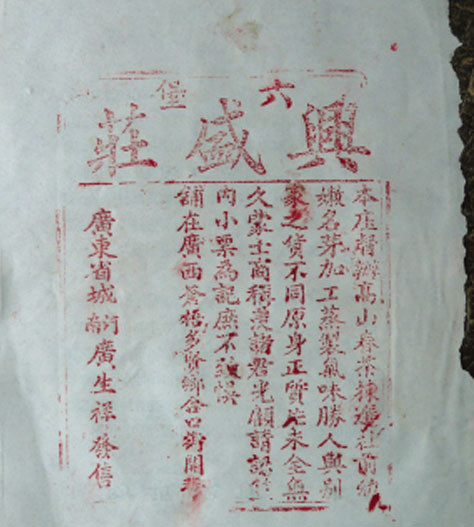 六堡
興盛莊
本庄督辦高山春茶揀選社前
嫩名芽加工蒸製氣味勝人與別
家之貨不同原身正質花末全無
久蒙士商稱羨諸君光顧請認
內小票為記庶不致悞
舖在廣西蒼梧多賢鄉合口街開張
廣東省城河南廣生祥發信